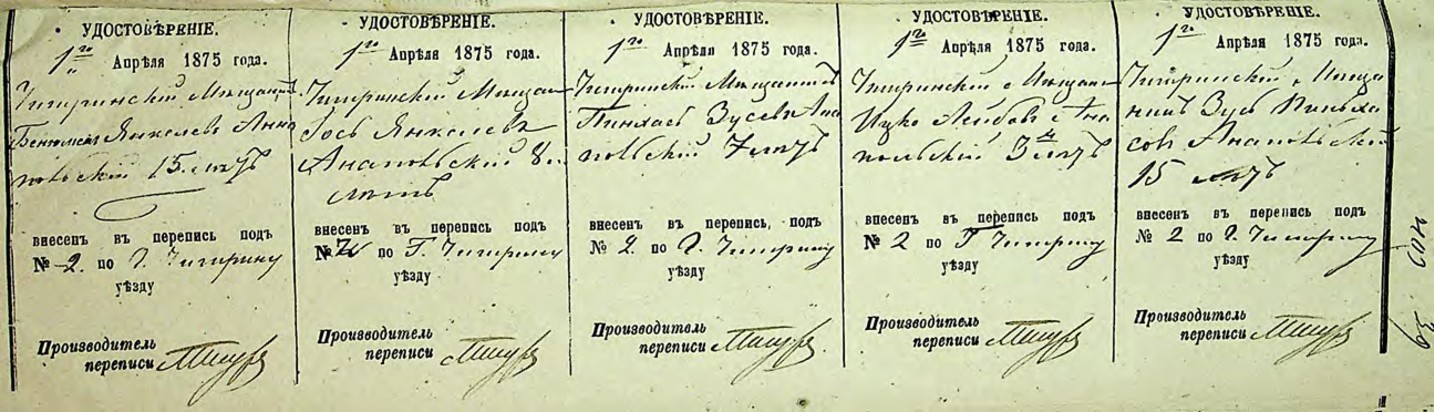 УДОСТОВѢРЕНІЕ.
1го Апрѣля 1875 года.
Чигиринскій Мѣщанинъ
Беньюмен Янкелевъ Анна
повскій 15 лѣтъ
внесенъ въ перепись подъ
№ 2. по г. Чигирину
уѣзду
Производитель
переписи
УДОСТОВѢРЕНІЕ.
1го Апрѣля 1875 года.
Чигиринскій Мѣщан
Гось Янкелевъ
Анаповьский 8
лѣтъ
внесенъ въ перепись подъ
№ 2 по Г. Чигирину
уѣзду
Производитель
переписи
УДОСТОВѢРЕНІЕ.
1го Апрѣля 1875 года.
Чигиринскій Мѣщанинъ
Пинхасъ Зусевъ Ана
повьскій 7 лѣтъ
внесенъ въ перепись, подъ
№ 2. по г. Чигирину
уѣзду
Производитель
переписи
УДОСТОВѢРЕНІЕ.
1го Апрѣля 1875 года.
Чигиринскій Мѣщан
Ицко Лейбовъ Ана
польскій 3 лѣтъ
внесенъ въ перепись подъ
№ 2 по Г Чигирину
уѣзду
Производитель
переписи
УДОСТОВѢРЕНІЕ.
1го Апрѣля 1875 года.
Чигиринскій Мѣща
нинъ Зусь Пиньха
совъ Анаповьскій
15 лѣтъ
внесенъ въ перепись подъ
№ 2 по г. Чигирину
уѣзду
Производитель
переписи